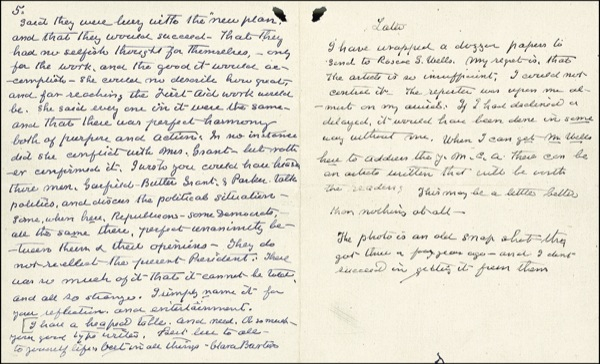 5.
said they were busy with the "new plan",
and that they would succeed - That they
had no selfish thought for themselves, - only
for the work, and the good it would ac-
complish - She could no describe how great,
and far reaching the First Aid work would
be. She said every one in it were the same -
and that there was perfect harmony
both of purpose and action. In no instance
did she conflict with Mrs. Grant - but rath-
er confirmed it. I wish you could have heard
these men, Garfield - Butler Grant, & Parker talk
politics, and discuss the political situation -
Some, when here, Republicans - some Democrats,
all the same there, perfect unanimity be-
tween them & their opinions - They do
not re-ellect the present President. There
was so much of it that it cannot be told,
and all so strange. I simply name it for
your reflection and entertainment.
I have a heaped table, and need, Oh so much
your good type writer. Best love to all -
to yourself life's best in all things - Clara Barton
Later
I have wrapped a dozzen papers to
send to Roscoe S. Wells. My regret is, that
the artist is so insufficient, I could not
control it. The reporter was upon me al-
most on my arrival. If I had declined or
delayed, it would have been done in some
way without me. When I can get Mr Wells
here to address the Y. M. C. A. there can be
an article written that will be worth
the reading. This may be a little better
than nothing at all -
The photo is an old snap shot they
got three or four years ago - and I dont
succeed in getting it from them